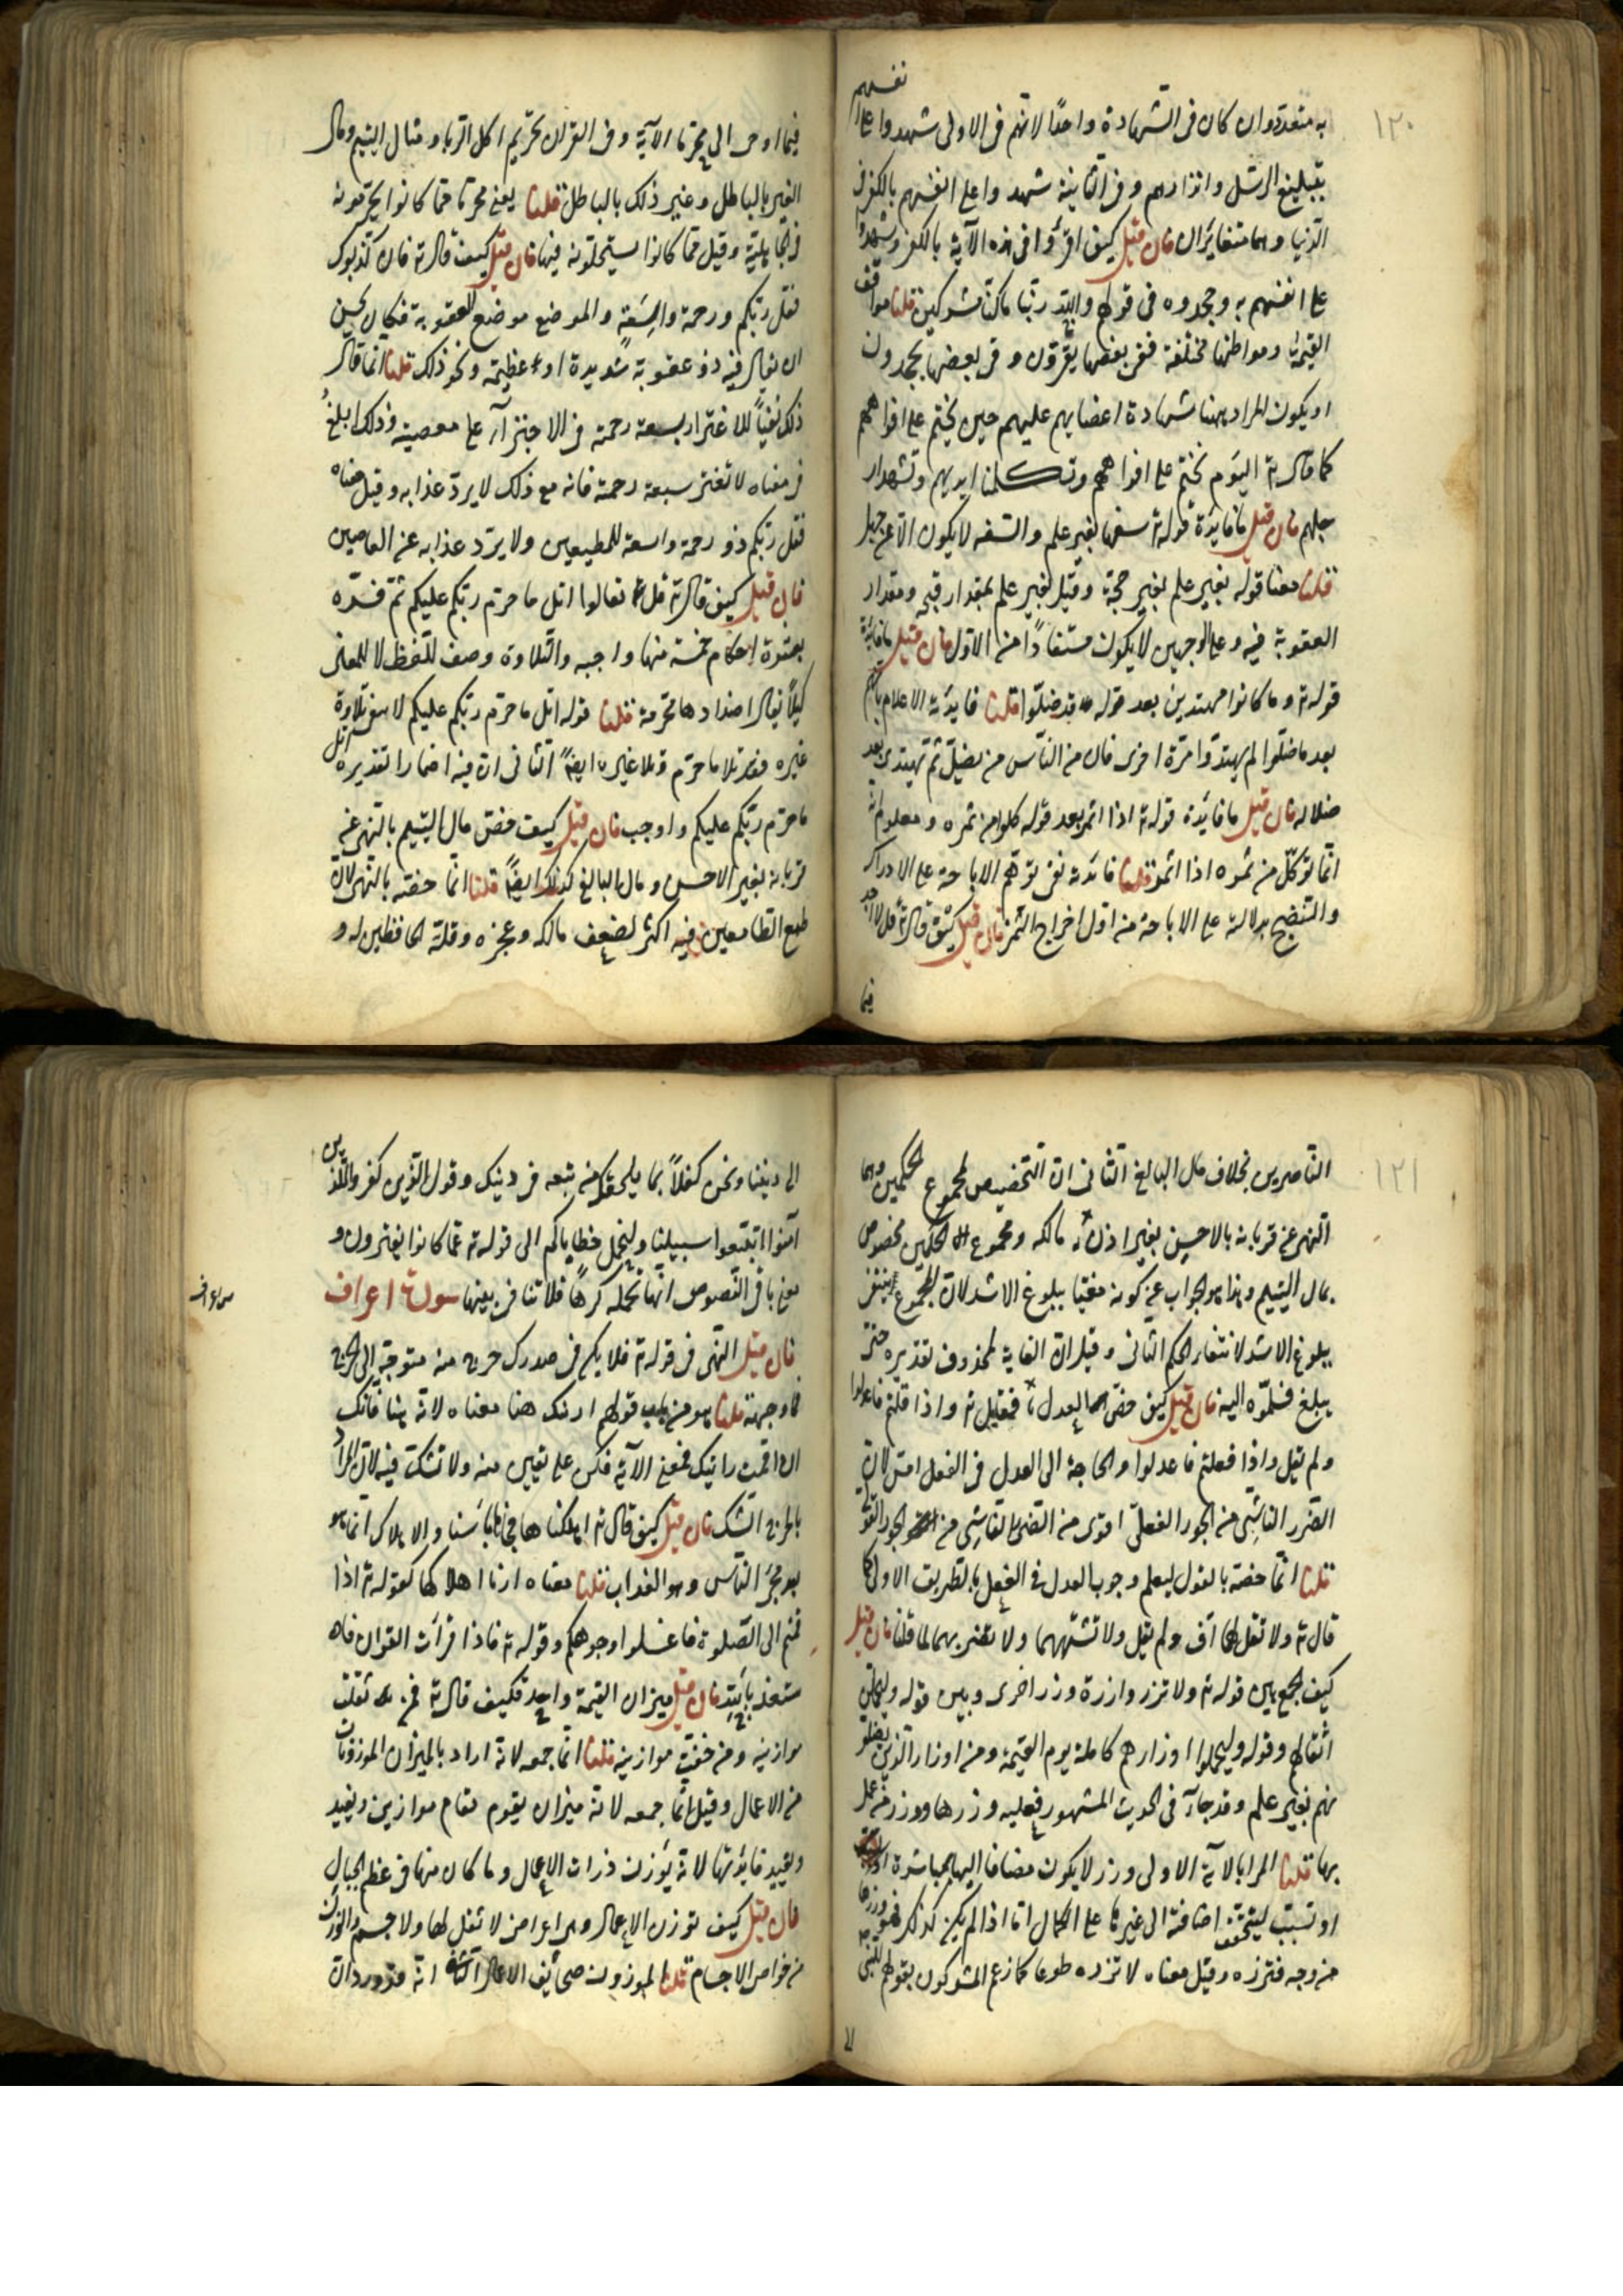 ١٢٠
به متعددوان كان فى الشهادة واحدًا لانهم فى الاولى شهدوا على انفسهم
بتبليغ الرسل وانذارهم وفى الثانية شهدوا على انفسهم بالكفر فى
الدنيا وهما متغايران فان قيل كيف اقرؤا فى هذه الآية بالكفر وشهدوا
على انفسهم به وجحدوه فى قولهم والله ربنا ما كنا مشركين قلنا مواقف
القيمة ومواطنها مختلفة ففى بعضها يقرّون وفى بعضها يجحدون
او يكون المراد بهنا شهادة اعضايهم عليهم حين يختم على افواههم
كما قال ته اليوم نختم على افواههم وتكلمنا ايديهم وتشهد ار
جلهم فان قيل ما فايدة قوله ته سفها بغير علم والسفه لا يكون الا عن جهل
قلنا معنا قوله بغير علم بغير حجة وقيل بغير علم بمقدار قبحه ومقدار
العقوبة فيه وعلى الوجهين لا يكون مستفادًا من الاول فان قيل ما فايدة
قوله ته وما كانوا مهتدين بعد قوله ته قد ضلّوا قلنا فايدته الاعلام بانهم
بعد ما ضلّوا لم يهتدوا مرّة اخرى فان من الناس من يضلّ ثم يهتدى بعد
ضلاله فان قيل ما فايدة قوله ته اذا اثمر بعد قوله كلوا من ثمره ومعلوم انه
انما يؤكل من ثمره اذا اثمر قلنا فائدته نفى توهّم الاباحة على الادراك
والنضج بدلالته على الاباحة من اول اخراج الثمر فان قيل كيف قال ته قل لا اجد
فيما
فيما اوحى الى محرّما الآية وفى القران تحريم اكل الربا ومال اليتيم ومال
الغير بالباطل وغير ذلك بالباطل قلنا يعنى محرّما مما كانوا يحرّمونه
فى الجاهليّة وقيل مما كانوا يستحلّونه فيها فان قيل كيف قال ته فان كذبوك
فقل ربّكم ذو رحمة واسِعَةٍ والموضع موضع العقوبة فكان يحسن
ان يقال فيه ذو عقوبة شديدة او عظيمة ونحو ذلك قلنا انما قال
ذلك نفيًا للاغترار بسعة رحمته فى الاجتزآء على معصيته وذلك ابلغ
فى معناه لا تغتر بسعة رحمته فانه مع ذلك لا يردّ عذابه وقيل معناه
فقل ربّكم ذو رحمة واسعة للمطيعين ولا يردّ عذابه عن العاصين
فان قيل كيف قال ته قل تعالوا اتل ما حرّم ربّكم عليكم ثم فسّره
بعشرة احكام خمسة منها واجبه والتلاوة وصف للّفظ لا للمعنى
كيلا يقال اضدادها محرّمة قلنا قوله اتل ما حرّم ربّكم عليكم لا ينفى تلاوة
غيره فقد تلا ما حرّم وتلا غيره ايضًا الثانى ان فيه اضمارا تقديره اتل
ما حرّم ربّكم عليكم واوجب فان قيل كيف خصّ مال اليتيم بالنهى عن
قربانه بغير الاحسن ومال البالغ كذلك ايضًا قلنا انما خصّه بالنهى لان
طمع الطامعين فيه اكثر لضعف مالكه وعجزه وقلّة الحافظين له و
١٢١
الناصرين بخلاف مال البالغ الثانى ان التخصيص لمجموع الحكمين وهما
النهى عن قربانه بالاحسن بغير اذن مالكه ومجموع الحكمين مخصوص
بمال اليتيم وهذا هو الجواب عن كونه مغيّا ببلوغ الاشد لان المجموع ينتفى
ببلوغ الاشد لانتفاء الحكم الثانى وقيل ان الغاية لمحذوف تقديره حتى
يبلغ فسلّموه اليه فان قيل كيف خصّ العدل بالقول فقيل ته واذا قلتم فاعدلوا
ولم يقل واذا فعلتم فاعدلوا والحاجة الى العدل فى الفعل امسّ لان
الضرر الناشى من الجور الفعلى اقوى من الضرر الناشى من الجور القو
قلنا انما خصّه بالقول ليعلم وجوب العدل فى الفعل بالطريق الاولى كما
قال ته ولا تقل لهما اف ولم يقل ولا تشتمهما ولا تضربهما لما قلنا فان قيل
كيف الجمع بين قوله ته ولا تزر وازرة وزر اخرى وبين قوله وليحملن
اثقالهم وقوله وليحملوا اوزارهم كاملة يوم القيمة ومن اوزار الذين يضلو
نهم بغير علم وقد جاء فى الحديث المشهور فعليه وزرها ووزر من عمل
بها قلنا المراد بالآية الاولى وزر لا يكون مضافا اليها بمباشرة
او تسبّب ليتحقق اضافته الى غيرها على الكمال اما اذا لم يكن كذلك فهو وزرها
من وجه فتزره وقيل معناه لا تزره طوعا كما زعم المشركون بقولهم للنبى
الى ديننا ونحن كفلاً بما يلحقك من تبعه فى دينك وقول الذين كفروا للذين
آمنوا اتبعوا سبيلنا ولنحمل خطاياكم الى قوله ته عمّا كانوا يفترون و
معنى باقى النصوص انها تحمله كرهًا فلا تنافى بينها سورة اعراف
سورة اعراف
فان قيل النهى فى قوله ته فلا يكن فى صدرك حرج منه متوجّه الى الحرج
فما وجهه قلنا هو من باب قولهم ارينك هنا معناه لا تقم هنا فانك
ان اقمت رأيتك فمعنى الآية فكن على يقين منه ولا تشكّ فيه لان المراد
بالحرج الشك فان قيل كيف قال ته اهلكناها فجائها بأسنا والاهلاك انما هو
بعد مجئ البأس وهو العذاب قلنا معناه اردنا اهلاكها كقوله ته اذا
قمتم الى الصلوة فاغسلوا وجوهكم وقوله ته فاذا قرأت القران فا
ستعذ بالله فان قيل ميزان القيمة واحد فكيف قال ته فمن ثقلت
موازينه ومن خفت موازينه قلنا انما جمعه لانه اراد بالميزان الموزونات
من الاعمال وقيل انما جمعه لانه ميزان يقوم مقام موازين ويفيد
ويفيد فايدتها لانه يوزن ذرات الاعمال وما كان منها فى عظم الجبال
فان قيل كيف توزن الاعمال وهى اعراض لا ثقل لها ولا جسم والوزن
من خواص الاجسام قلنا الموزون صحائف الاعمال انه قد ورد ان